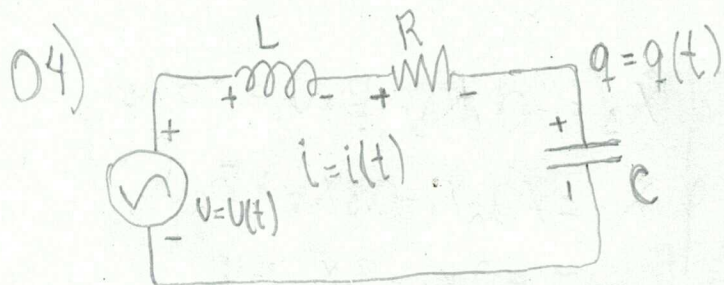 04)
L
R
q = q(t)
+ - + -
+
+
i = i(t)
v = v(t)
C
-
-